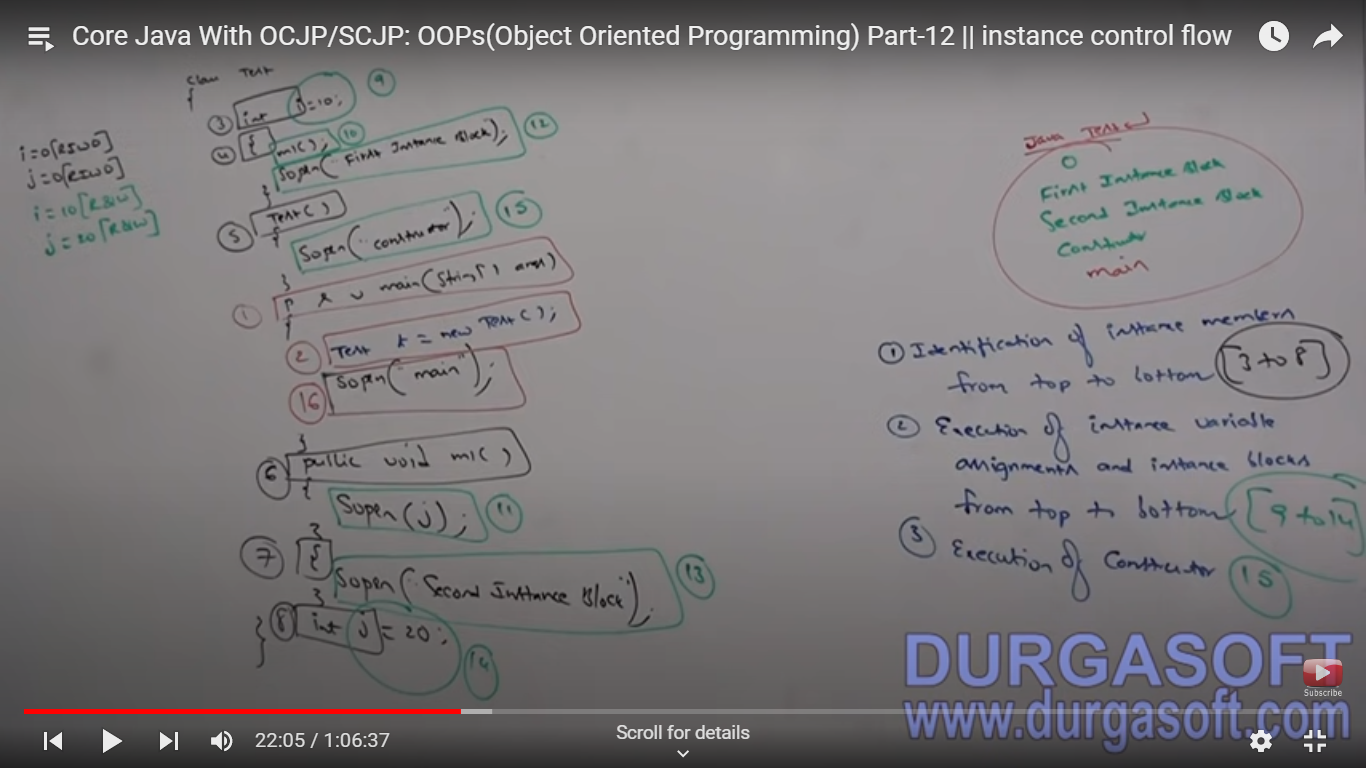 Core Java With OCJP/SCJP: OOPs(Object Oriented Programming) Part-12 || instance control flow
class Test
{
③ int i=10; ⑨
④ { m1(); ⑩
Sopln("First Instance Block"); ⑫
}
⑤ Test()
{
Sopln("constructor"); ⑮
}
① p s v main(String[] args)
{
② Test t = new Test();
⑯ Sopln("main");
}
⑥ public void m1()
{
Sopln(j); ⑪
}
⑦ {
Sopln("Second Instance Block"); ⑬
}
⑧ int j = 20; ⑭
}
i=0[RIWO]
j=0[RIWO]
i=10[R&W]
j=20[R&W]
Java Test ↵
0
First Instance Block
Second Instance Block
Constructor
main
① Identification of instance members
from top to bottom [3 to 8]
② Execution of instance variable
assignments and instance blocks
from top to bottom [9 to 14]
③ Execution of Constructor 15
DURGASOFT
www.durgasoft.com
Subscribe
22:05 / 1:06:37
Scroll for details